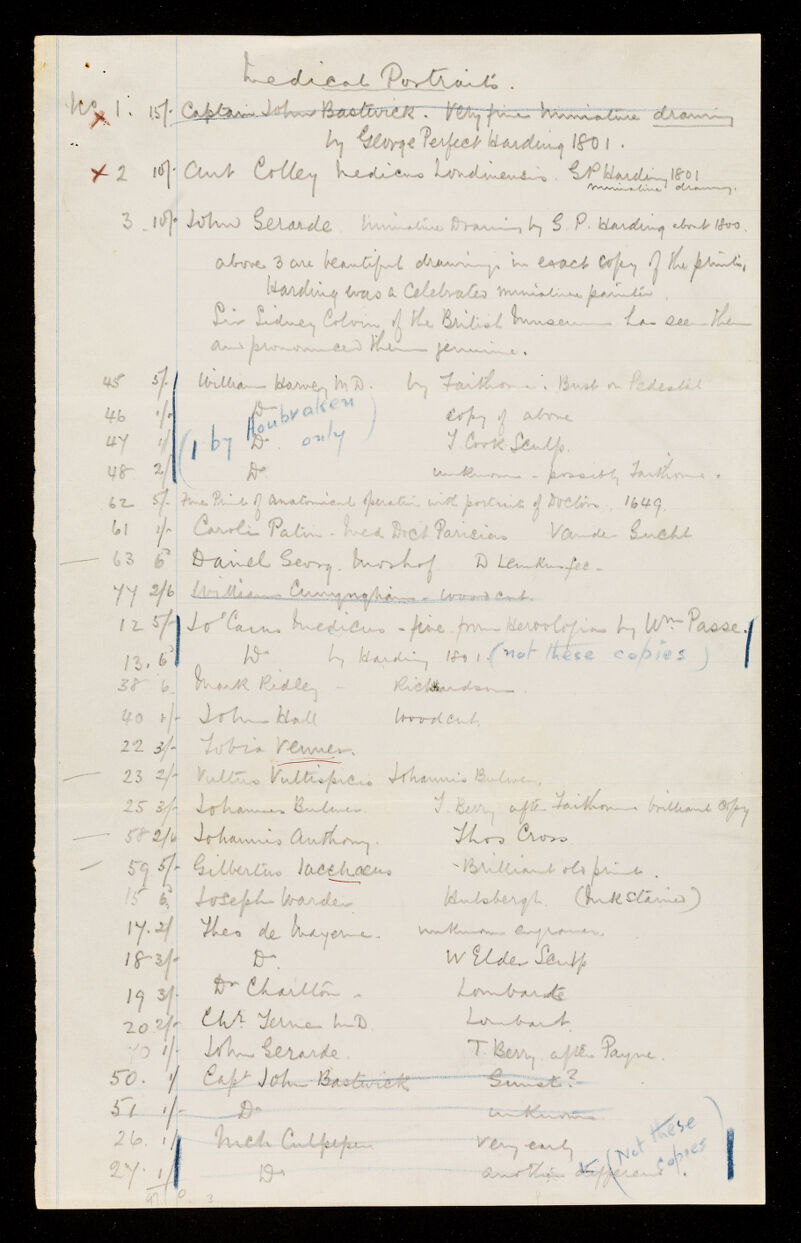 Medical Portraits.
No 1. 15/- Captain John Bastwick. Very fine Miniature drawing
by George Perfect Harding 1801.
x 2 10/- Ant Colley Medicus Londinensis. G P Harding 1801
miniature drawing.
3. 10/- John Gerarde. Miniature Drawing by G. P. Harding about 1800.
above 3 are beautiful drawings in exact copy of the prints,
Harding was a Celebrated miniature painter.
Sir Sidney Colvin of the British Museum has seen them
and pronounced them genuine.
45 5/- William Harvey M.D. by Faithorne. Bust on Pedestal
46 1/- Do copy of above
47 1/ Do. J. Cook Sculp.
48 2/ Do unknown - possibly Faithorne.
(1 by Houbraken only)
62 5/- Fine Print of anatomical operation with portraits of Doctors. 1649.
61 1/- Caroli Patin - Med Doct Parisiens Vander Gucht
63 6d Daniel Georg. Morhof D Lemkus fec.
77 2/6 William Cunyngham - woodcut.
12 5/- Jos Caius Medicus - fine from Herwologia by Wm Passe.
13. 6d Do by Harding 1801. (not these copies)
38 6 Mark Ridley - Richardson.
40 1/- John Hall woodcut.
22 3/- Tobia Venner.
23 2/- Vultus Vultispicis Johannis Bulwer.
25 3/- Johannes Bulwer. T. Berry after Faithorne brilliant copy
58 2/6 Johannis Anthony. Thos Cross
59 5/- Gilbertus Jacchaeus - Brilliant old print.
15 6d Joseph Warder Hulsbergh. (Ink Stained)
17. 2/ Theo de Mayerne. unknown engraver.
18 3/- Do. W Elder Sculp
19 3/- Dr Charlton - Lombarde
20. 2/- Chr. Terne M.D. Lombart.
70 1/- John Gerarde. T. Berry after Payne.
50. 1/ Capt John Bastwick Gunst?
51 1/- Do unknown
26. 1/ Nich Culpeper very early
27. 1/ Do another different.
(Not these copies)